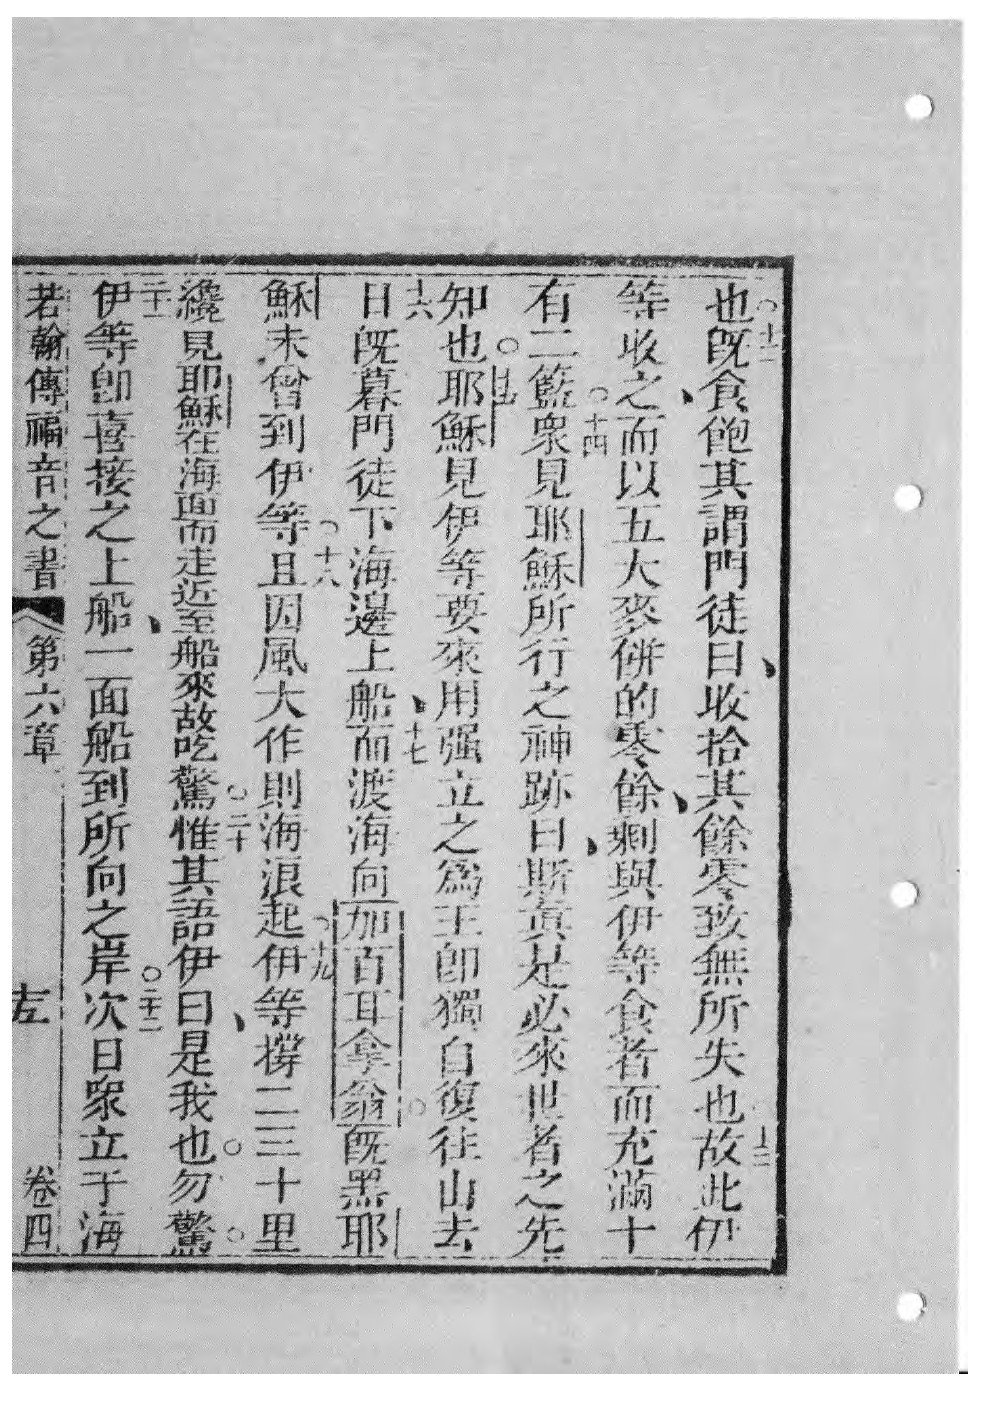 也○十二既食飽其謂門徒曰、收拾其餘零致無所失也○十三故此伊
等收之、而以五大麥餅的零餘、剩與伊等食者而充滿十
有二籃○十四衆見耶穌所行之神跡曰、斯眞是必來世者之先
知也○十五耶穌見伊等要來用强立之爲王卽獨自復往山去○
十六日既暮門徒下海邊上船、十七而渡海向加百耳拿翁既黑耶
穌未曾到伊等○十八且因風大作則海浪起○十九伊等撐二三十里
纔見耶穌在海面而走近至船來故吃驚○二十惟其語伊曰、是我也○勿驚○
二十一伊等卽喜接之上船、一面船到所向之岸○二十二次日衆立于海
若翰傳福音之書 第六章 左 卷四